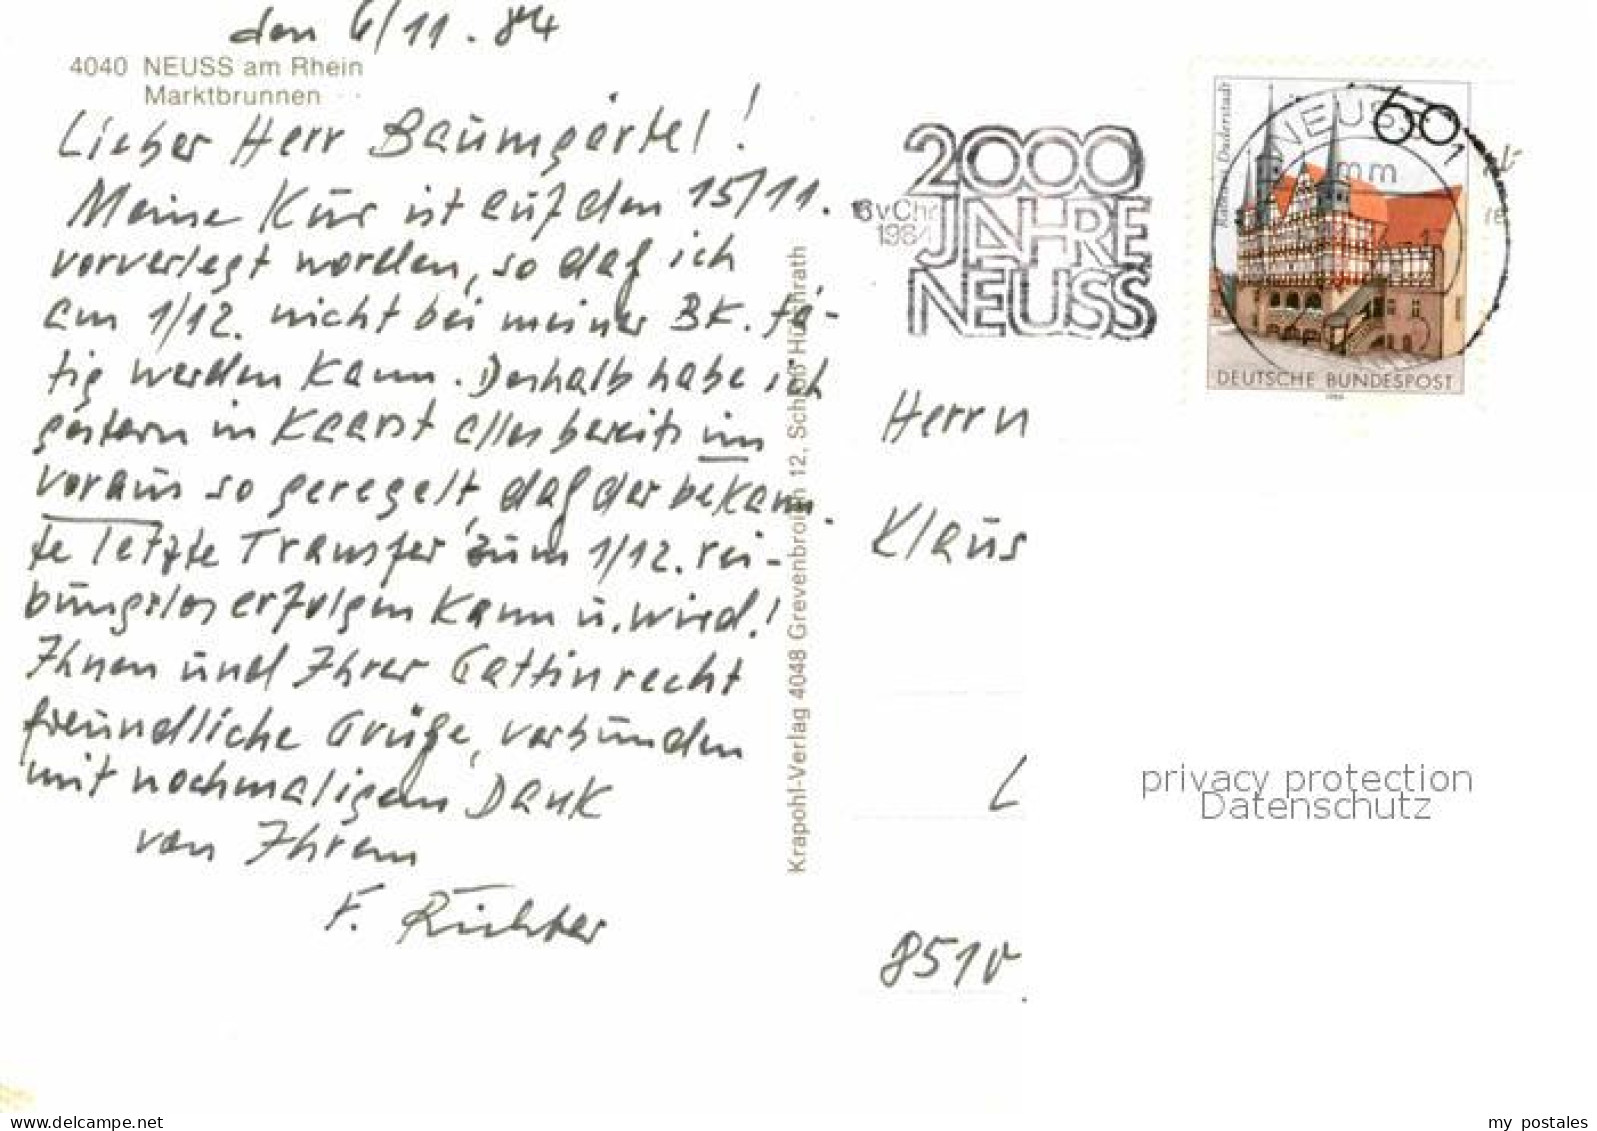 den 6/11.84
4040 NEUSS am Rhein
Marktbrunnen
Lieber Herr Baumgärtel!
Meine Kur ist auf den 15/11.
vorverlegt worden, so daß ich
am 1/12. nicht bei meiner BK. tä-
tig werden kann. Deshalb habe ich
gestern in Kaarst alles bereits im
voraus so geregelt, daß der bekann-
te letzte Transfer zum 1/12. rei-
bungslos erfolgen kann u. wird!
Ihnen und Ihrer Gattin recht
freundliche Grüße, verbunden
mit nochmaligem Dank
von Ihrem
F. Richter
Krapohl-Verlag 4048 Grevenbroich 12, Schloß Hülchrath
2000
JAHRE
NEUSS
v Chr
1984
60
NEUSS 1
mm
Rathaus in Duderstadt
DEUTSCHE BUNDESPOST
Herrn
Klaus
L
851
privacy protection
Datenschutz
delcampe.net
my_postales